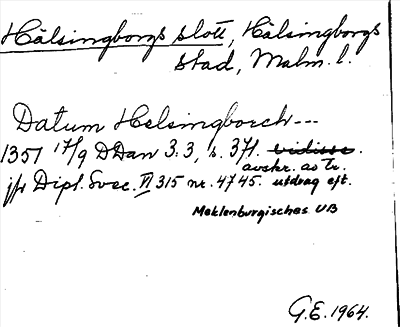 Hälsingborgs slott, Hälsingborgs
stad, Malm. l.
Datum Helsingborch---
1351 17/9 DDan 3:3, s. 371. vidisse.
avskr. av tr.
jfr Dipl. Svec. VI 315 nr. 4745. utdrag eft.
Meklenburgisches UB
G.E. 1964.